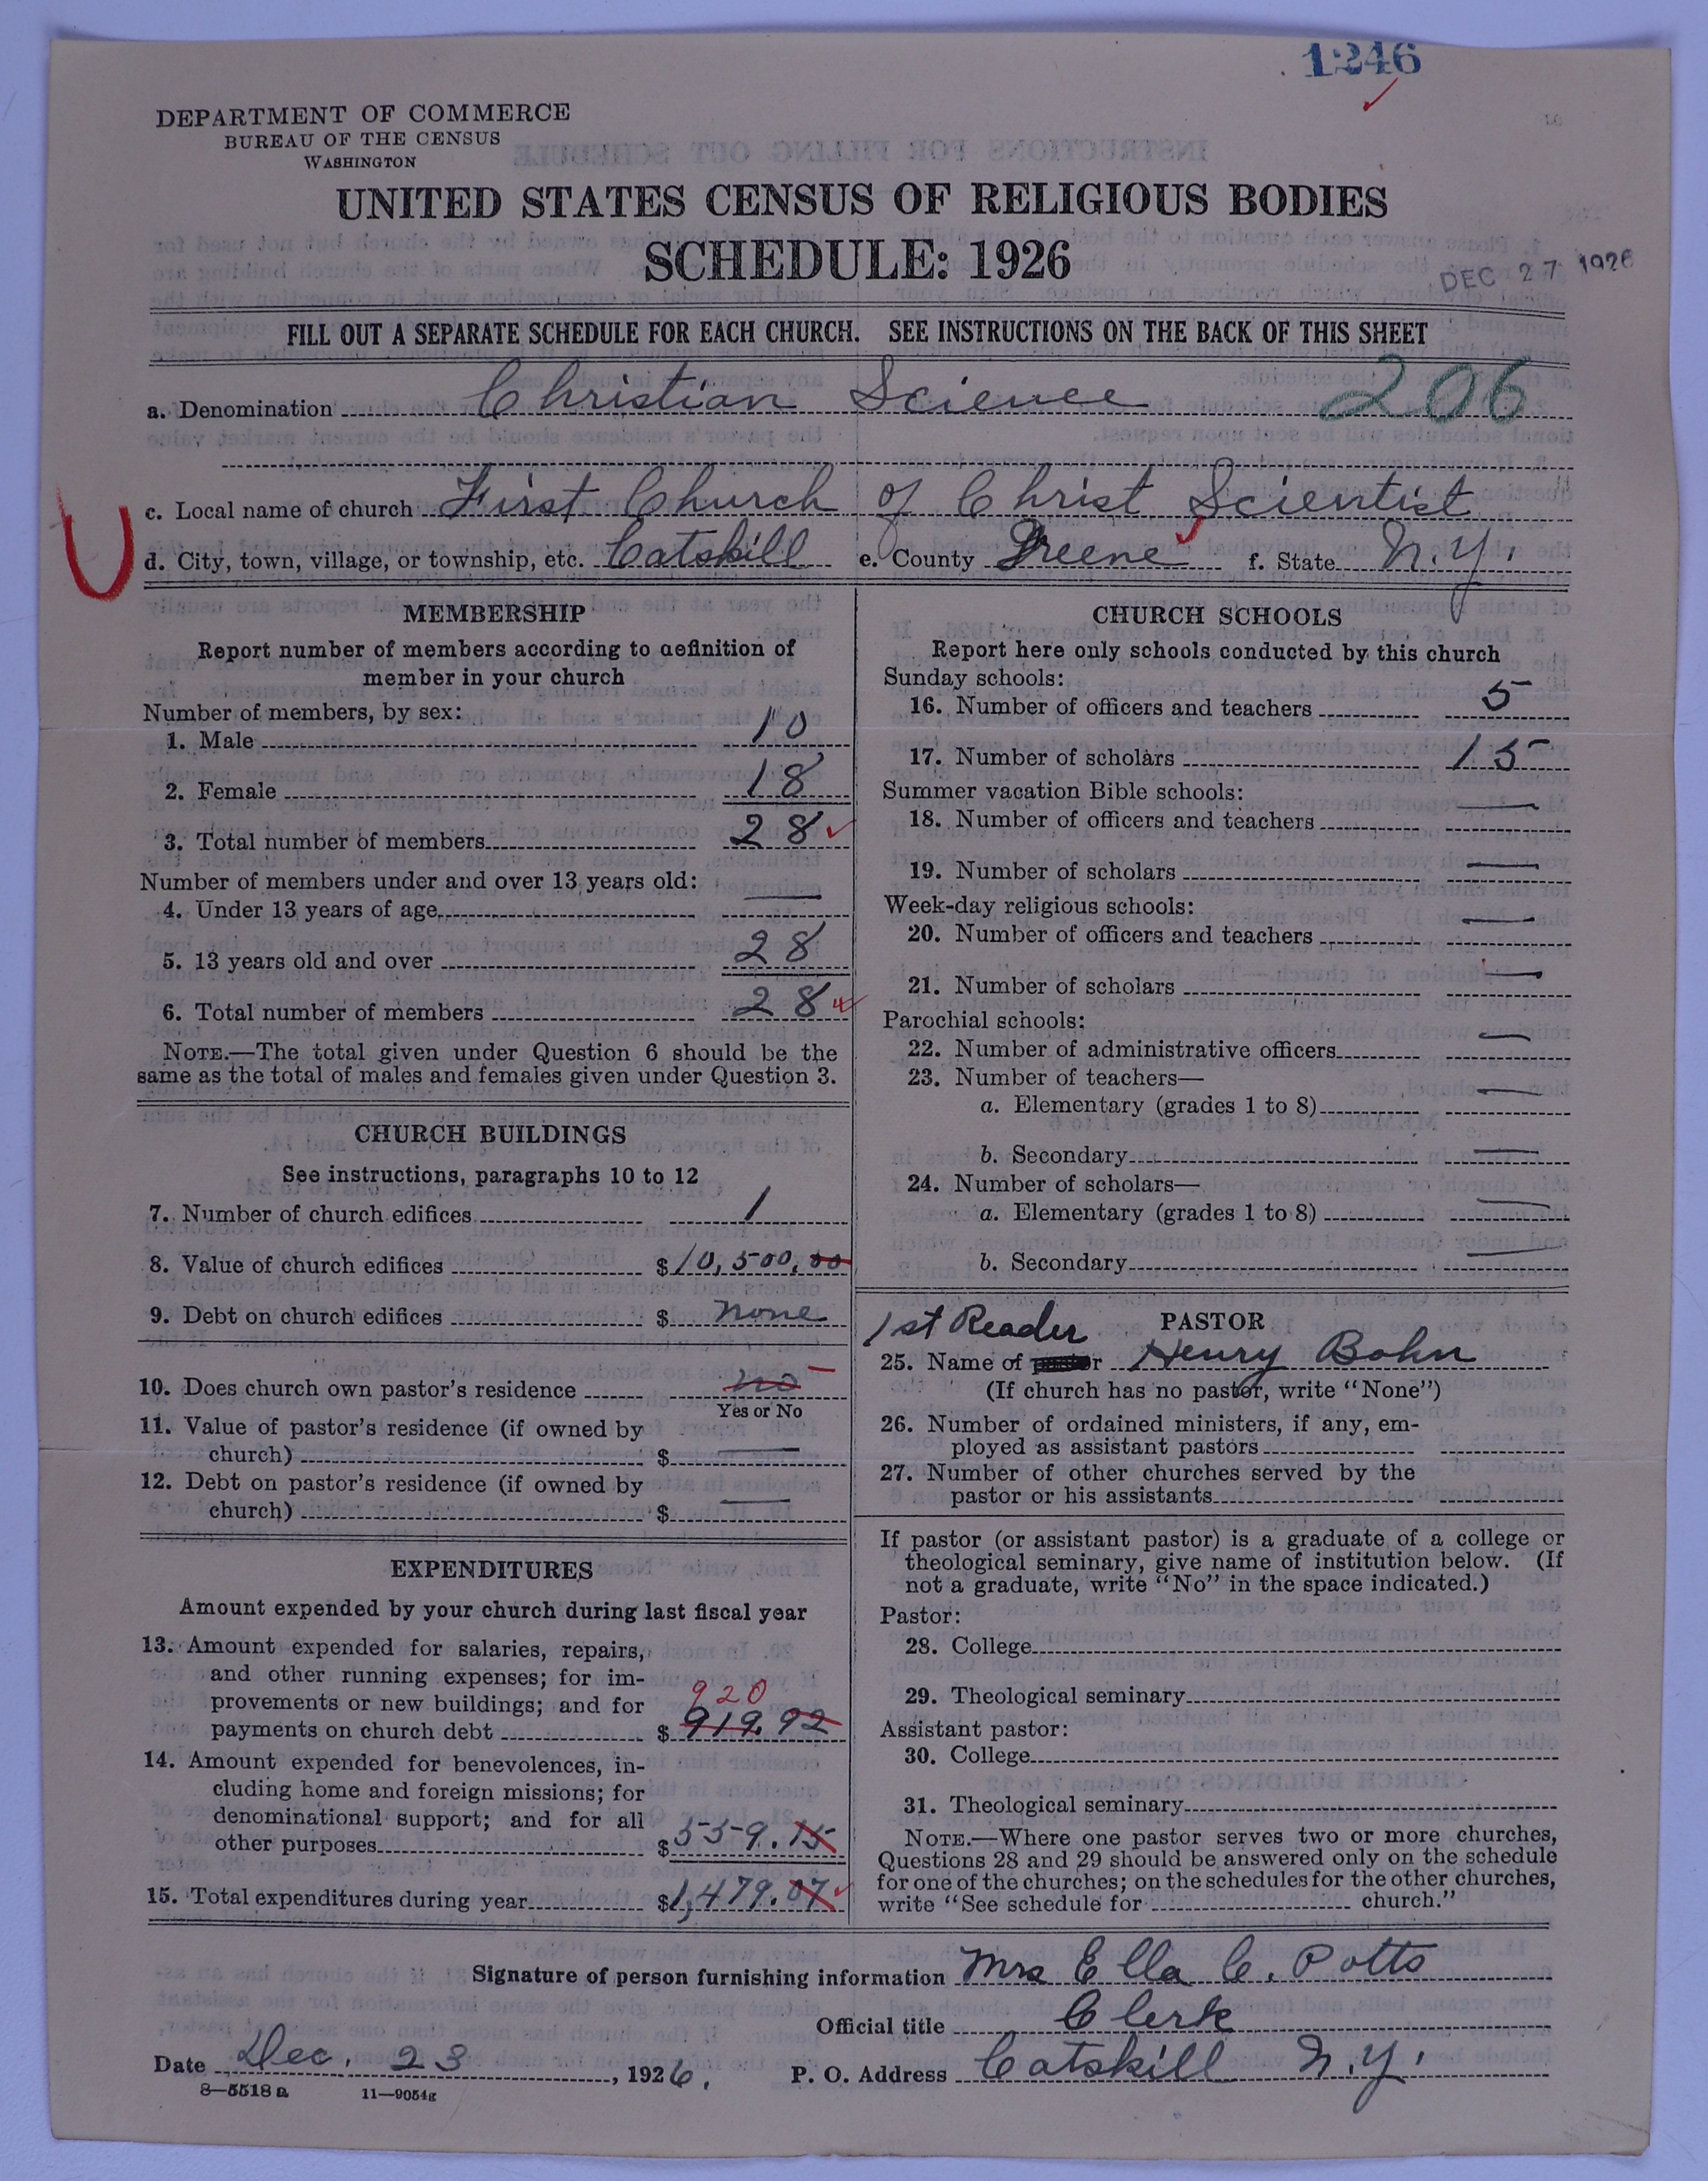 1246
DEPARTMENT OF COMMERCE
BUREAU OF THE CENSUS
WASHINGTON
UNITED STATES CENSUS OF RELIGIOUS BODIES
SCHEDULE: 1926
DEC 27 1926
FILL OUT A SEPARATE SCHEDULE FOR EACH CHURCH. SEE INSTRUCTIONS ON THE BACK OF THIS SHEET
a. Denomination Christian Science 206
c. Local name of church First Church of Christ Scientist
d. City, town, village, or township, etc. Catskill e. County Greene f. State N.Y.
MEMBERSHIP
Report number of members according to definition of
member in your church
Number of members, by sex:
1. Male 10
2. Female 18
3. Total number of members 28
Number of members under and over 13 years old:
4. Under 13 years of age —
5. 13 years old and over 28
6. Total number of members 28
NOTE.—The total given under Question 6 should be the
same as the total of males and females given under Question 3.
CHURCH BUILDINGS
See instructions, paragraphs 10 to 12
7. Number of church edifices 1
8. Value of church edifices $10,500,00
9. Debt on church edifices $ none
10. Does church own pastor's residence no
Yes or No
11. Value of pastor's residence (if owned by
church) $ —
12. Debt on pastor's residence (if owned by
church) $ —
EXPENDITURES
Amount expended by your church during last fiscal year
13. Amount expended for salaries, repairs,
and other running expenses; for im-
provements or new buildings; and for
920
payments on church debt $ 919.92
14. Amount expended for benevolences, in-
cluding home and foreign missions; for
denominational support; and for all
other purposes $559.15
15. Total expenditures during year $1,479.07
CHURCH SCHOOLS
Report here only schools conducted by this church
Sunday schools:
16. Number of officers and teachers 5
17. Number of scholars 15
Summer vacation Bible schools:
18. Number of officers and teachers —
19. Number of scholars —
Week-day religious schools:
20. Number of officers and teachers —
21. Number of scholars —
Parochial schools:
22. Number of administrative officers —
23. Number of teachers—
a. Elementary (grades 1 to 8) —
b. Secondary —
24. Number of scholars—
a. Elementary (grades 1 to 8) —
b. Secondary —
1st Reader PASTOR
25. Name of r Henry Bohn
(If church has no pastor, write "None")
26. Number of ordained ministers, if any, em-
ployed as assistant pastors
27. Number of other churches served by the
pastor or his assistants
If pastor (or assistant pastor) is a graduate of a college or
theological seminary, give name of institution below. (If
not a graduate, write "No" in the space indicated.)
Pastor:
28. College
29. Theological seminary
Assistant pastor:
30. College
31. Theological seminary
NOTE.—Where one pastor serves two or more churches,
Questions 28 and 29 should be answered only on the schedule
for one of the churches; on the schedules for the other churches,
write "See schedule for church."
Signature of person furnishing information Mrs Ella C. Potts
Official title Clerk
Date Dec. 23, 1926. P. O. Address Catskill N.Y.
8—5518 a 11—9054g